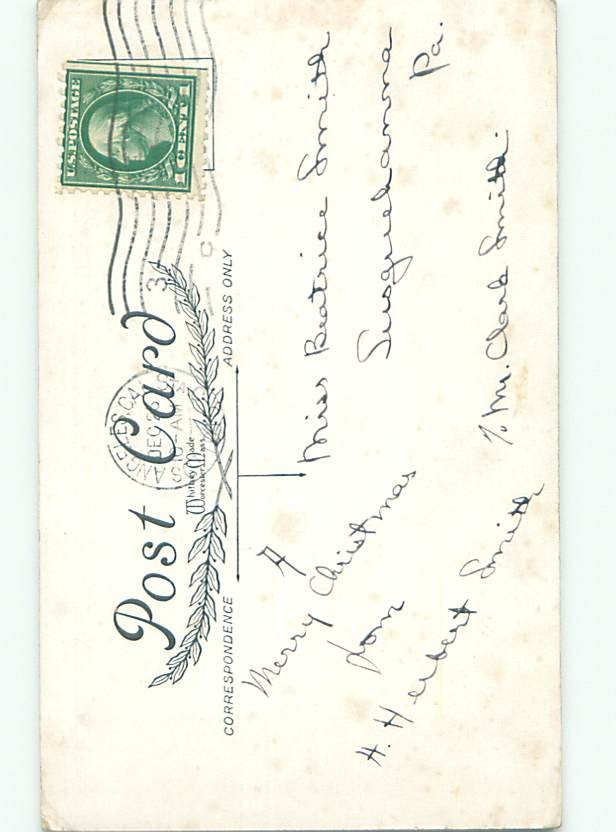 U.S. POSTAGE
1 CENT 1
Post Card
Whitney Made
Worcester, Mass
CORRESPONDENCE
ADDRESS ONLY
ANGELES, CA
DEC
AM
3
C
A
Merry Christmas
from
H. Herbert Smith
Miss Beatrice Smith
Susquehanna
Pa.
% Mr. Clark Smith.